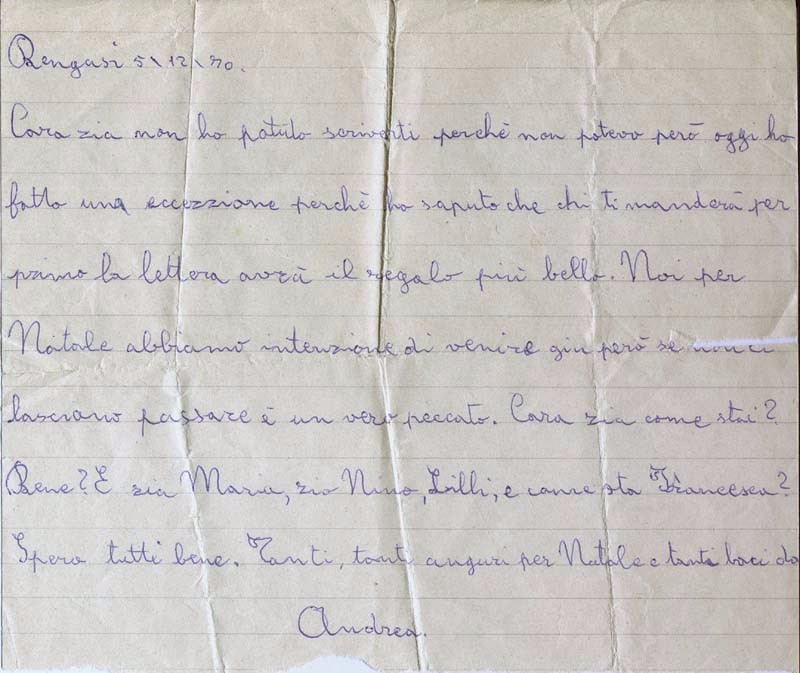 Bengasi 5\12\70.
Cara zia non ho potuto scriverti perchè non potevo però oggi ho
fatto una eccezzione perchè ho saputo che chi ti manderà per
primo la lettera avrà il regalo più bello. Noi per
Natale abbiamo intenzione di venire giù però se non ci
lasciano passare è un vero peccato. Cara zia come stai?
Bene? E zia Maria, zio Nino, Lilli, e come sta Francesca?
Spero tutti bene. Tanti, tanti auguri per Natale e tanti baci da
Andrea.